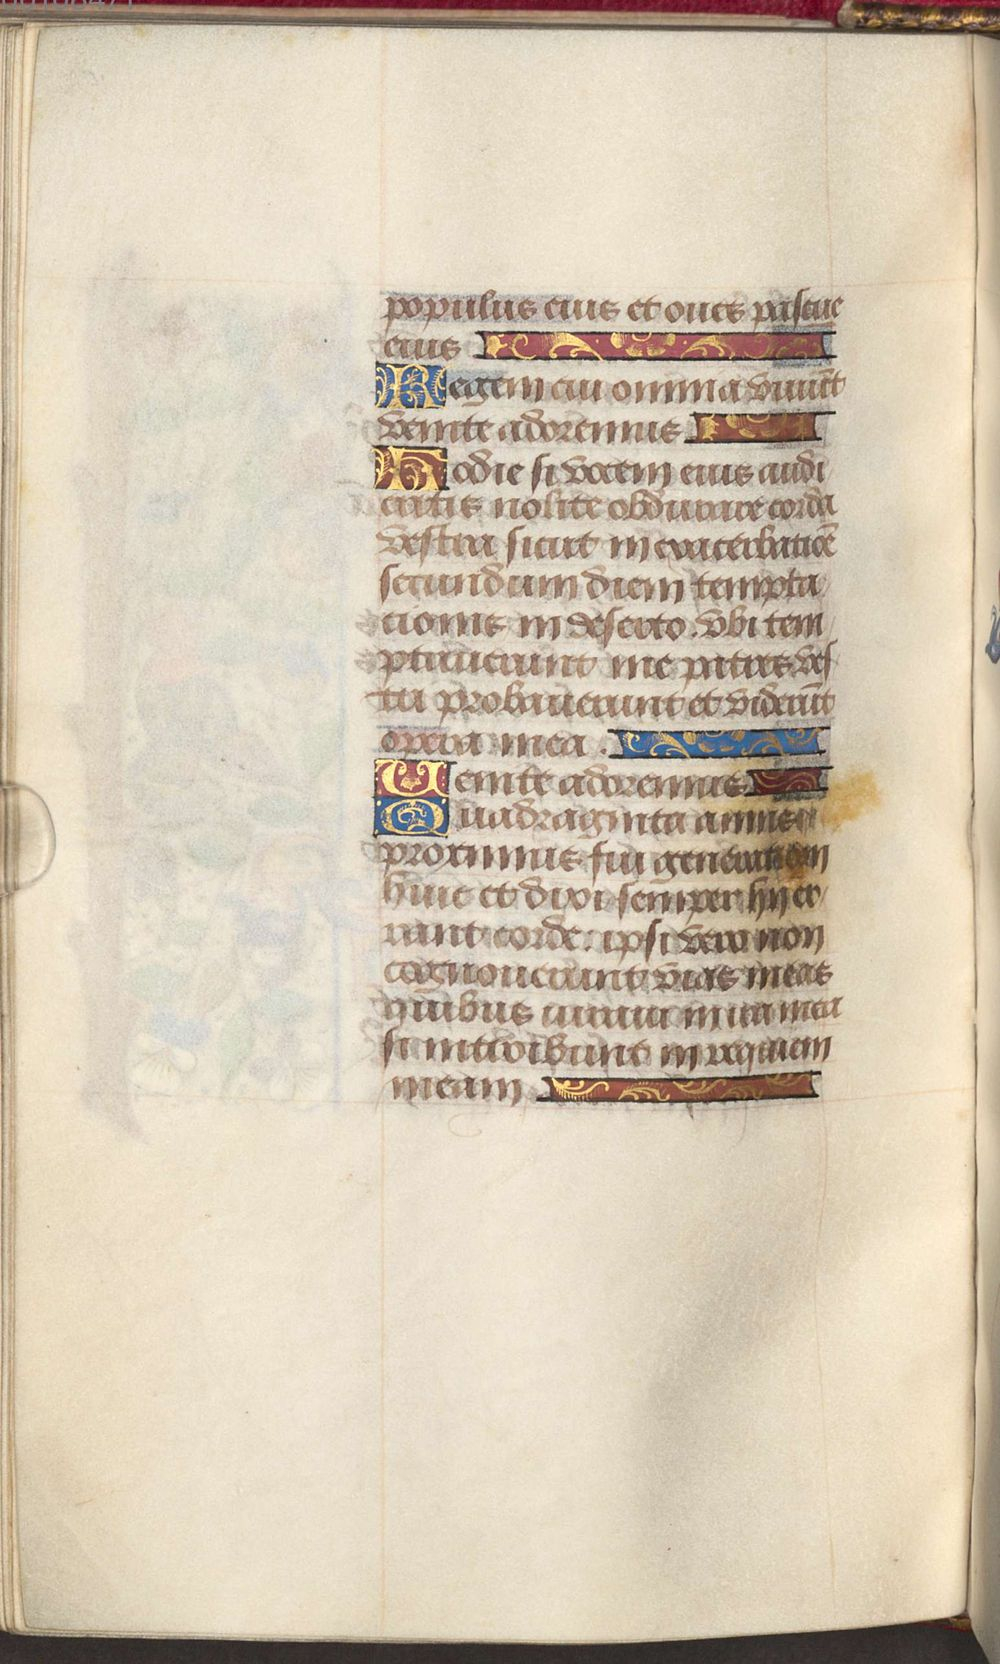 populus eius et oues pascue
eius
Regem cui omnia viuūt
venite adoremus
Hodie si vocem eius audi
eritis nolite obdurare corda
vestra sicut in exacerbatiōe
secundum diem tempta
cionis in deserto. vbi tem
ptauerunt me patres ves
tri probauerunt et viderūt
opera mea.
Uenite adoremus
Quadraginta annis
proximus fui generationi
huic et dixi semper hii er
rant corde: ipsi vero non
cognouerunt vias meas
quibus iuraui in ira mea
si introibunt in requiem
meam.